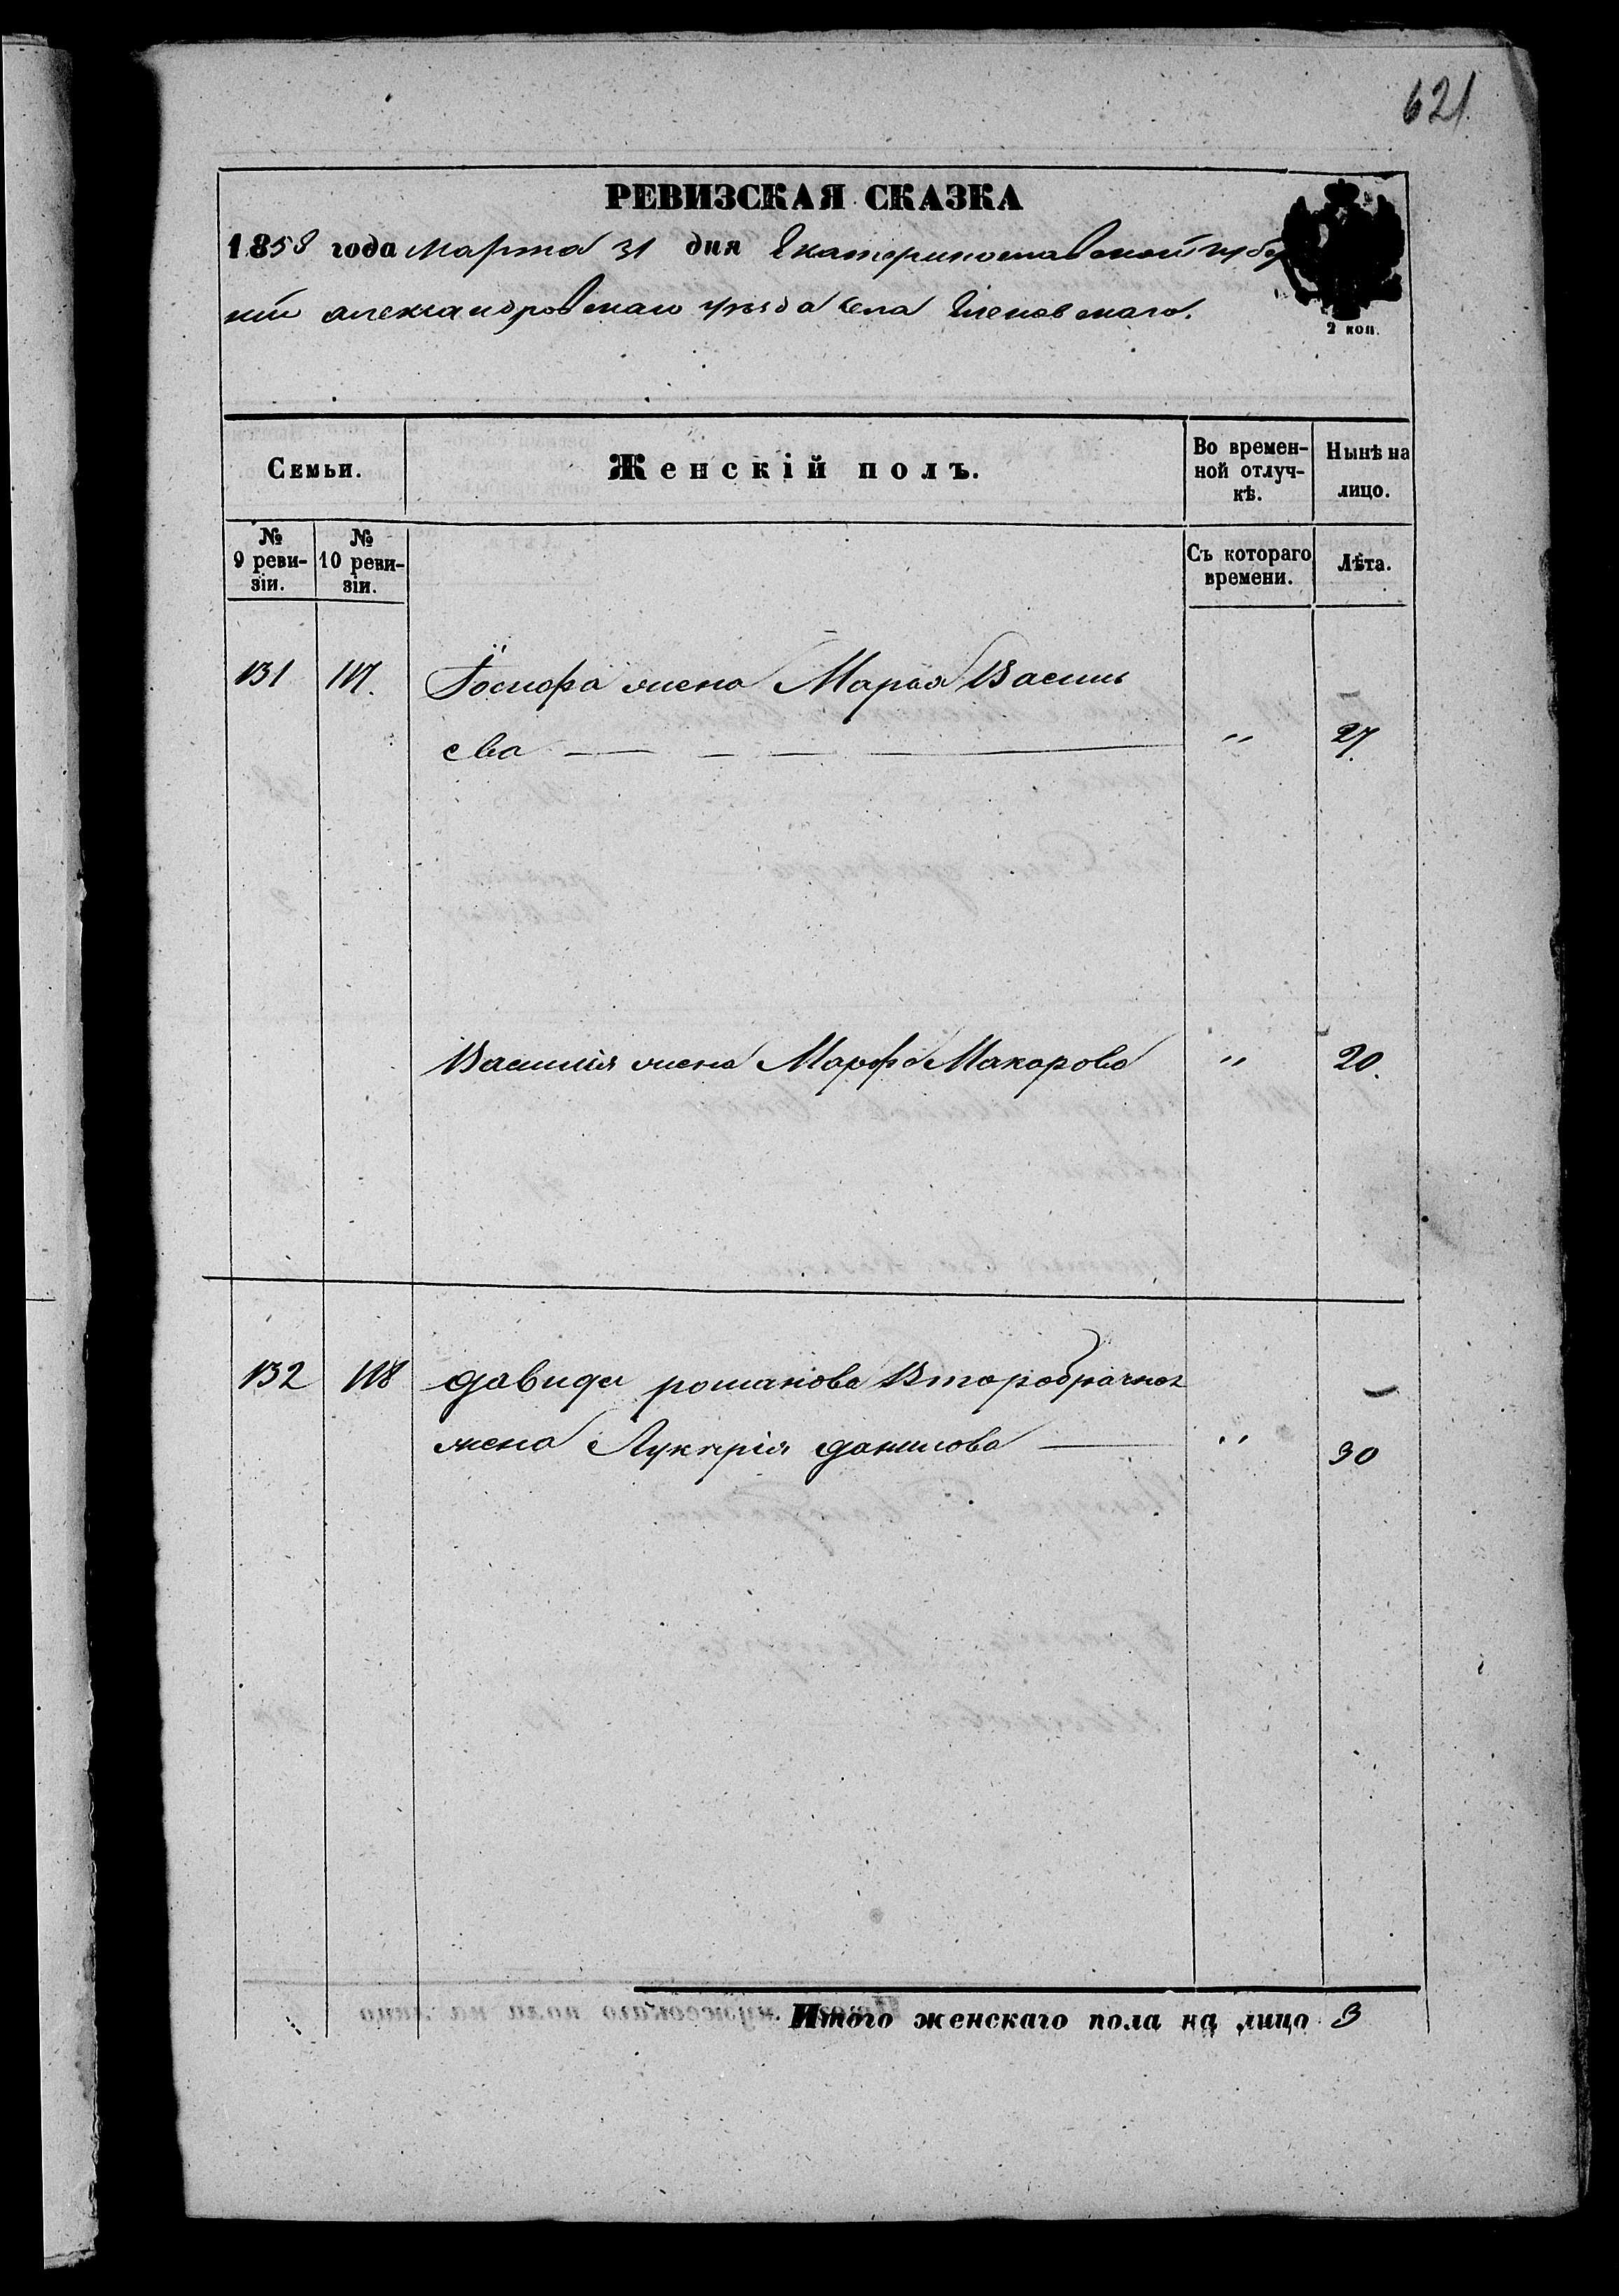 621
РЕВИЗСКАЯ СКАЗКА
1858 года Марта 31 дня Екатеринославской губер
нии Александровскаго уѣзда села Еленовскаго.
2 коп.
Семьи.
Женскій полъ.
Во времен-
ной отлуч-
кѣ.
Нынѣ на
лицо.
№
9 реви-
зіи.
№
10 реви-
зіи.
Съ котораго
времени.
Лѣта.
131 117. Іосифа жена Марья Василь
ева " 27.
Василія жена Марфа Макарова " 20.
132 118 Давида Романова Второбрачная
жена Лукерія Данилова " 30
Итого женскаго пола на лицо 3